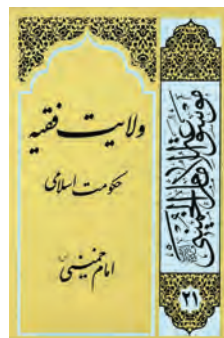 ولایت فقیه
حکومت اسلامی
امام خمینی
موسوعة الإمام الخميني
۲۱